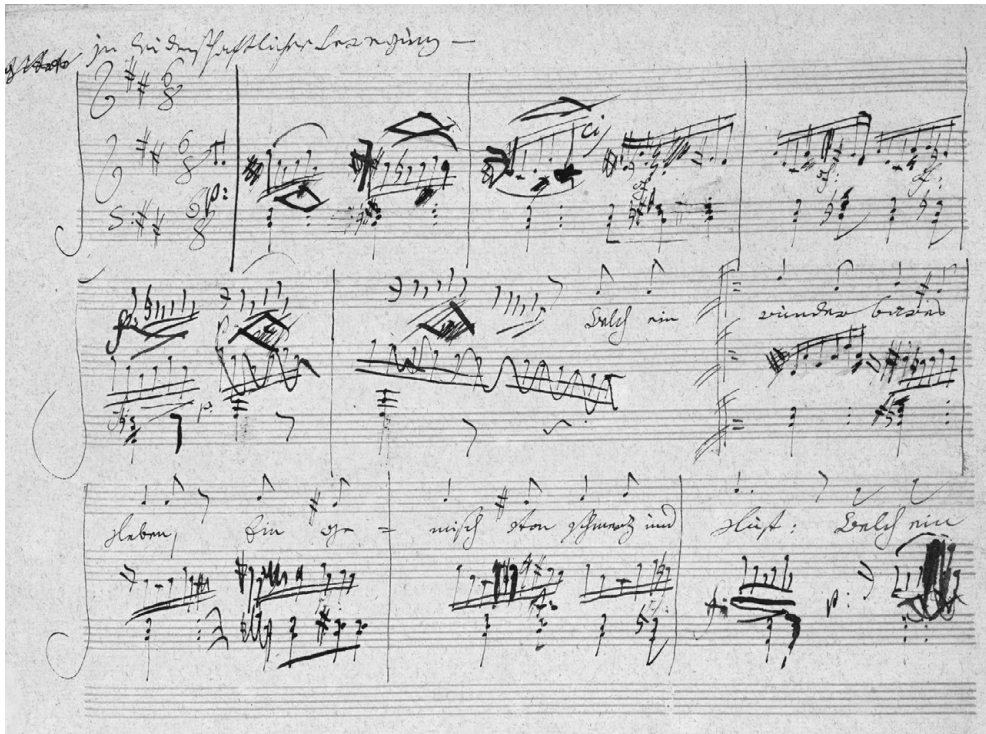 in leidenschaftlicher Bewegung —
Welch ein wunder bares
Leben, Ein Ge = misch von schmerz und Lust: Welch ein